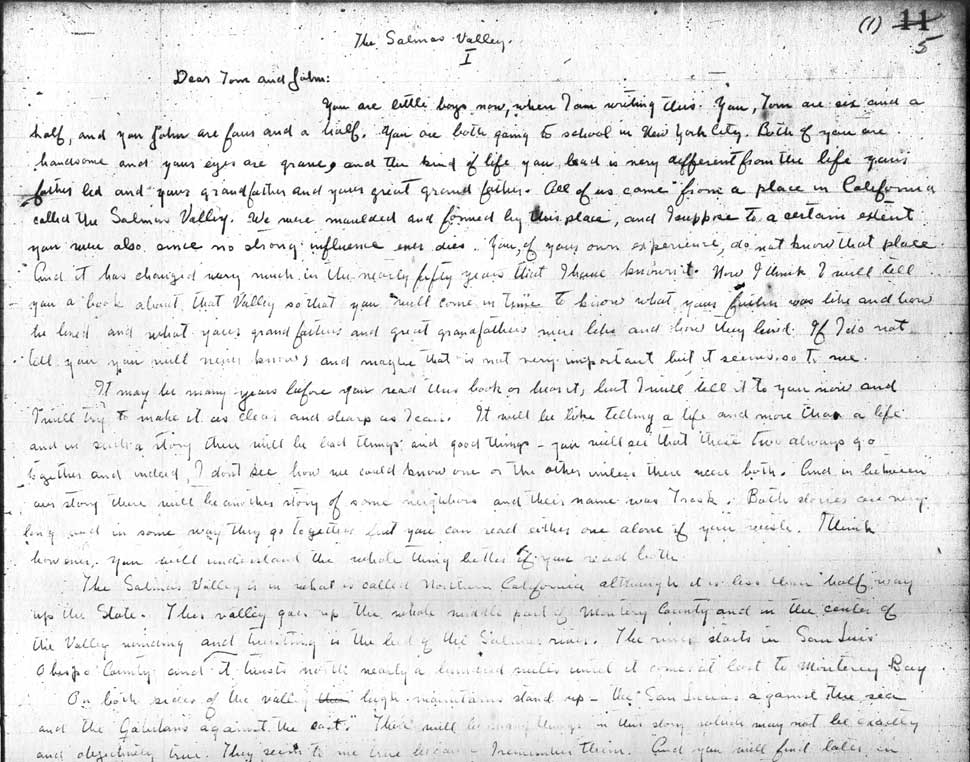 (1) 11
5
The Salinas Valley.
I
Dear Tom and John:
You are little boys now, when I am writing this. You, Tom are six and a
half, and you John are four and a half. You are both going to school in New York City. Both of you are
handsome and your eyes are grave, and the kind of life you lead is very different from the life your
father led and your grandfather and your great grand father. All of us came from a place in California
called the Salinas Valley. We were moulded and formed by this place, and I suppose to a certain extent
you were also since no strong influence ever dies. You, of your own experience, do not know that place.
And it has changed very much in the nearly fifty years that I have known it. Now I think I will tell
you a book about that Valley so that you will come in time to know what your father was like and how
he lived and what your grandfathers and great grandfathers were like and how they lived. If I do not
tell you you will never know, and maybe that is not very important but it seems so to me.
It may be many years before you read this book or hear it, but I will tell it to you now and
I will try to make it as clear and sharp as I can. It will be like telling a life and more than a life
and in such a story there will be bad things and good things - you will see that these two always go
together and indeed, I don't see how we could know one or the other unless there were both. And in between
our story there will be another story of some neighbors and their name was Trask. Both stories are very
long and in some way they go together but you can read either one alone if you wish. I think
however, you will understand the whole thing better if you read both.
The Salinas Valley is in what is called Northern California although it is less than half way
up the State. This valley goes up the whole middle part of Monterey County and in the center of
the Valley winding and twisting is the bed of the Salinas river. The river starts in San Luis
Obispo County and it twists north nearly a hundred miles until it comes at last to Monterey Bay
On both sides of the valley the high mountains stand up - the San Lucias against the sea
and the Gabilans against the east. There will be many things in this story which may not be exactly
and objectively true. They seem to me true because I remember them. And you will find later in